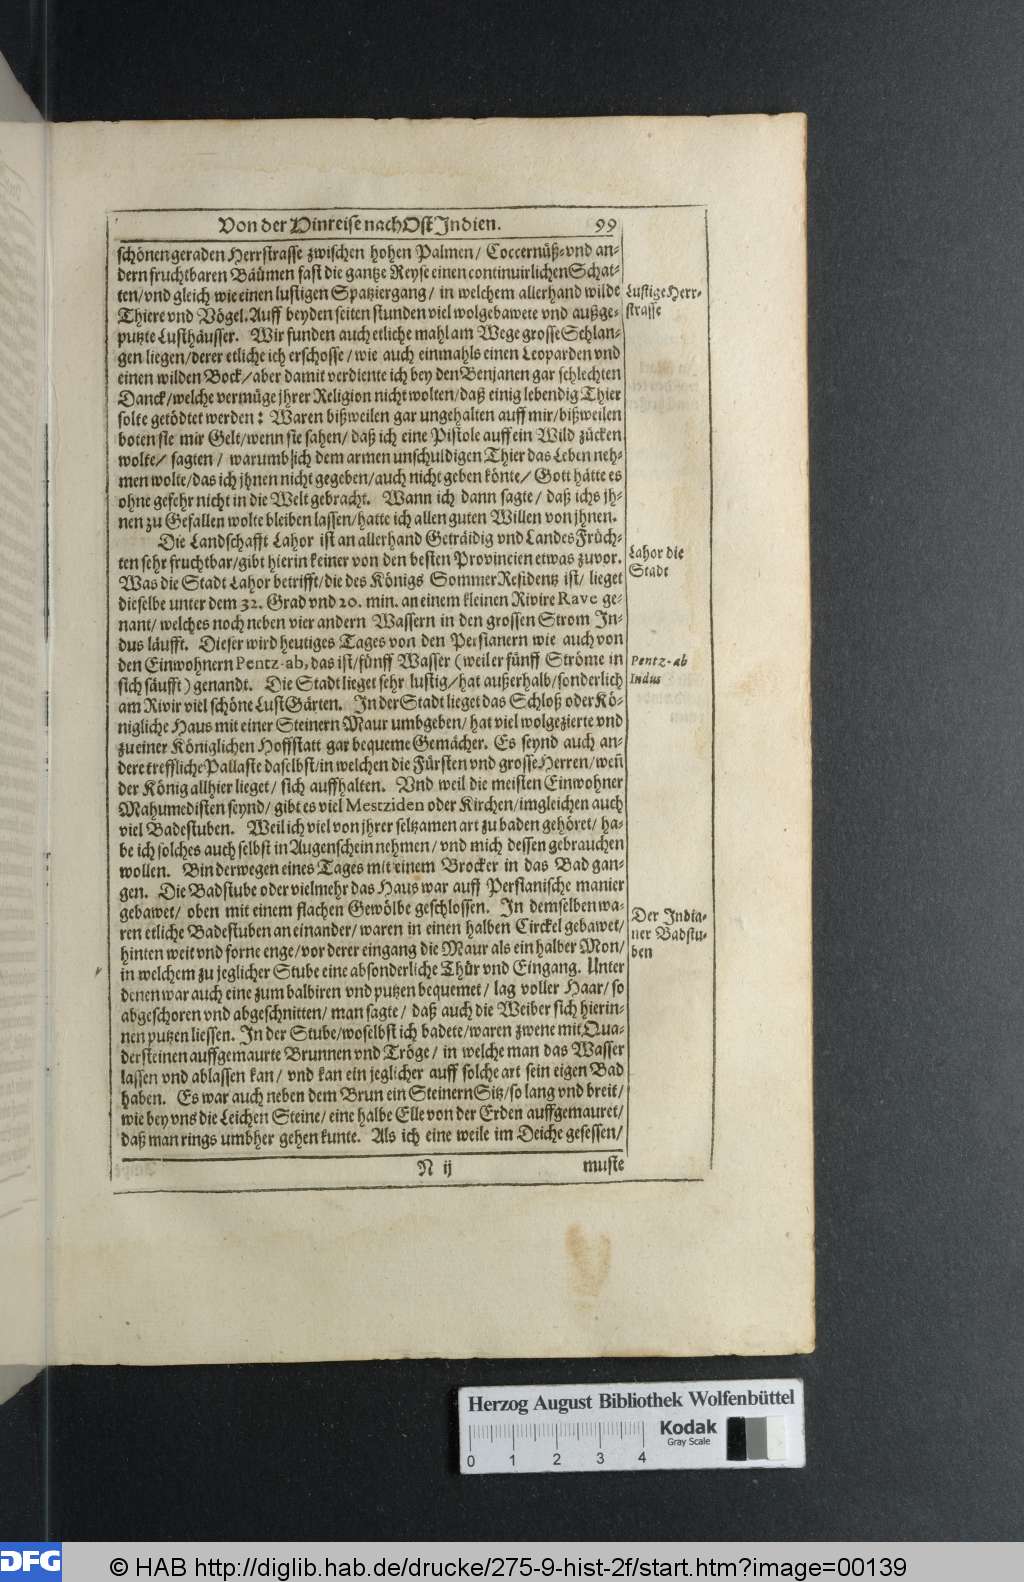 Von der Hinreise nach Ost Indien. 99
schönen geraden Herrstrasse zwischen hohen Palmen/ Coccernüß- vnd an-
dern fruchtbaren Bäümen fast die gantze Reyse einen continuirlichen Schat-
ten/vnd gleich wie einen lustigen Spatziergang/ in welchem allerhand wilde
Lustige Herr-
strasse
Thiere vnd Vögel. Auff beyden seiten stunden viel wolgebawete vnd außge-
putzte Lusthäusser. Wir funden auch etliche mahl am Wege grosse Schlan-
gen liegen/derer etliche ich erschosse/wie auch einmahls einen Leoparden vnd
einen wilden Bock/aber damit verdiente ich bey den Benjanen gar schlechten
Danck/welche vermüge jhrer Religion nicht wolten/daß einig lebendig Thier
solte getödtet werden: Waren bißweilen gar ungehalten auff mir/bißweilen
boten sie mir Gelt/wenn sie sahen/ daß ich eine Pistole auff ein Wild zücken
wolte/ sagten/ warumb ich dem armen unschuldigen Thier das Leben neh-
men wolte/das ich jhnen nicht gegeben/auch nicht geben könte/ Gott hätte es
ohne gefehr nicht in die Welt gebracht. Wann ich dann sagte/ daß ichs jh-
nen zu Gefallen wolte bleiben lassen/hatte ich allen guten Willen von jhnen.
Die Landschafft Lahor ist an allerhand Geträidig vnd Landes Früch-
ten sehr fruchtbar/gibt hierin keiner von den besten Provincien etwas zuvor.
Lahor die
Stadt
Was die Stadt Lahor betrifft/die des Königs Sommer Residentz ist/ lieget
dieselbe unter dem 32. Grad vnd 20. min. an einem kleinen Rivire Rave ge-
nant/ welches noch neben vier andern Wassern in den grossen Strom In-
dus läufft. Dieser wird heutiges Tages von den Persianern wie auch von
den Einwohnern Pentz-ab, das ist/fünff Wasser (weil er fünff Ströme in
Pentz-ab
Indus
sich säufft) genandt. Die Stadt lieget sehr lustig/hat außerhalb/sonderlich
am Rivir viel schöne Lust Gärten. In der Stadt lieget das Schloß oder Kö-
nigliche Haus mit einer Steinern Maur umbgeben/ hat viel wolgezierte vnd
zu einer Königlichen Hoffstatt gar bequeme Gemächer. Es seynd auch an-
dere treffliche Pallaste daselbst/in welchen die Fürsten vnd grosse Herren/ weñ
der König allhier lieget/ sich auffhalten. Vnd weil die meisten Einwohner
Mahumedisten seynd/ gibt es viel Mestziden oder Kirchen/imgleichen auch
viel Badestuben. Weil ich viel von jhrer seltzamen art zu baden gehöret/ ha-
be ich solches auch selbst in Augenschein nehmen/ vnd mich dessen gebrauchen
wollen. Bin derwegen eines Tages mit einem Brocker in das Bad gan-
gen. Die Badstube oder vielmehr das Haus war auff Persianische manier
gebawet/ oben mit einem flachen Gewölbe geschlossen. In demselben wa-
Der India-
ner Badstu-
ben
ren etliche Badestuben an einander/ waren in einen halben Circkel gebawet/
hinten weit vnd forne enge/vor derer eingang die Maur als ein halber Mon/
in welchem zu jeglicher Stube eine absonderliche Thür vnd Eingang. Unter
denen war auch eine zum balbiren vnd putzen bequemet/ lag voller Haar/ so
abgeschoren vnd abgeschnitten/ man sagte/ daß auch die Weiber sich hierin-
nen putzen liessen. In der Stube/woselbst ich badete/waren zwene mit Qua-
dersteinen auffgemaurte Brunnen vnd Tröge/ in welche man das Wasser
lassen vnd ablassen kan/ vnd kan ein jeglicher auff solche art sein eigen Bad
haben. Es war auch neben dem Brun ein Steinern Sitz/so lang vnd breit/
wie bey vns die Leichen Steine/ eine halbe Elle von der Erden auffgemauret/
daß man rings umbher gehen kunte. Als ich eine weile im Deiche gesessen/
N ij muste
Herzog August Bibliothek Wolfenbüttel
Kodak
Gray Scale
0 1 2 3 4
DFG © HAB http://diglib.hab.de/drucke/275-9-hist-2f/start.htm?image=00139